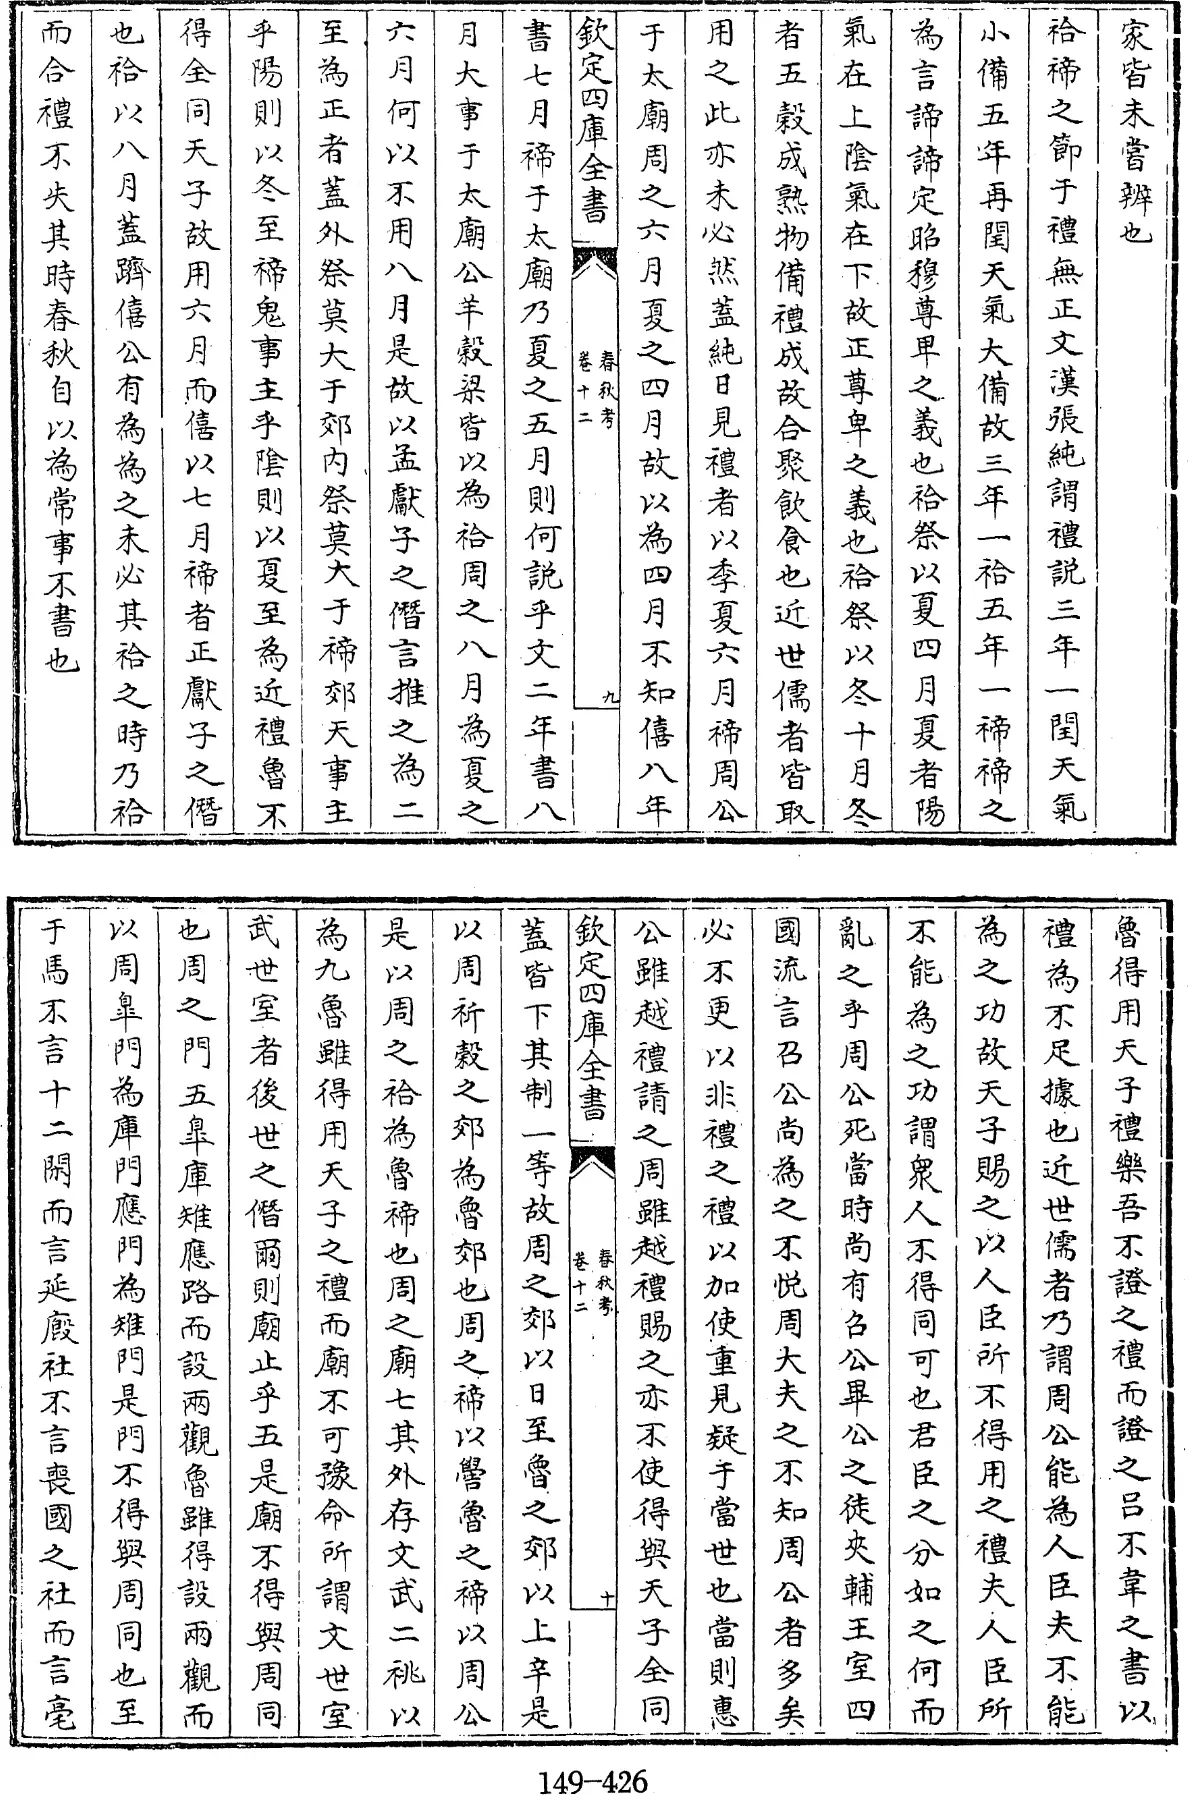 家皆未嘗辨也
祫禘之節于禮無正文漢張純謂禮説三年一閏天氣
小備五年再閏天氣大備故三年一祫五年一禘禘之
為言諦諦定昭穆尊卑之義也祫祭以夏四月夏者陽
氣在上陰氣在下故正尊卑之義也祫祭以冬十月冬
者五穀成熟物備禮成故合聚飲食也近世儒者皆取
用之此亦未必然蓋純日見禮者以季夏六月禘周公
于太廟周之六月夏之四月故以為四月不知僖八年
欽定四庫全書
春秋考
卷十二
九
書七月禘于太廟乃夏之五月則何説乎文二年書八
月大事于太廟公羊穀梁皆以為祫周之八月為夏之
六月何以不用八月是故以孟獻子之僭言推之為二
至為正者蓋外祭莫大于郊内祭莫大于禘郊天事主
乎陽則以冬至禘鬼事主乎陰則以夏至為近禮魯不
得全同天子故用六月而僖以七月禘者正獻子之僭
也祫以八月蓋躋僖公有為為之未必其祫之時乃祫
而合禮不失其時春秋自以為常事不書也
魯得用天子禮樂吾不證之禮而證之吕不韋之書以
禮為不足據也近世儒者乃謂周公能為人臣夫不能
為之功故天子賜之以人臣所不得用之禮夫人臣所
不能為之功謂衆人不得同可也君臣之分如之何而
亂之乎周公死當時尚有召公畢公之徒夾輔王室四
國流言召公尚為之不悦周大夫之不知周公者多矣
必不更以非禮之禮以加使重見疑于當世也當則惠
公雖越禮請之周雖越禮賜之亦不使得與天子全同
欽定四庫全書
春秋考
卷十二
十
蓋皆下其制一等故周之郊以日至魯之郊以上辛是
以周祈穀之郊為魯郊也周之禘以嚳魯之禘以周公
是以周之祫為魯禘也周之廟七其外存文武二祧以
為九魯雖得用天子之禮而廟不可豫命所謂文世室
武世室者後世之僭爾則廟止乎五是廟不得與周同
也周之門五臯庫雉應路而設兩觀魯雖得設兩觀而
以周臯門為庫門應門為雉門是門不得與周同也至
于馬不言十二閑而言延廏社不言喪國之社而言亳
149-426